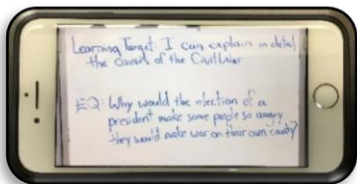 Learning Target: I can explain in detail
the causes of the Civil War
EQ: Why would the election of a
president make some people so angry
they would make war on their own country?